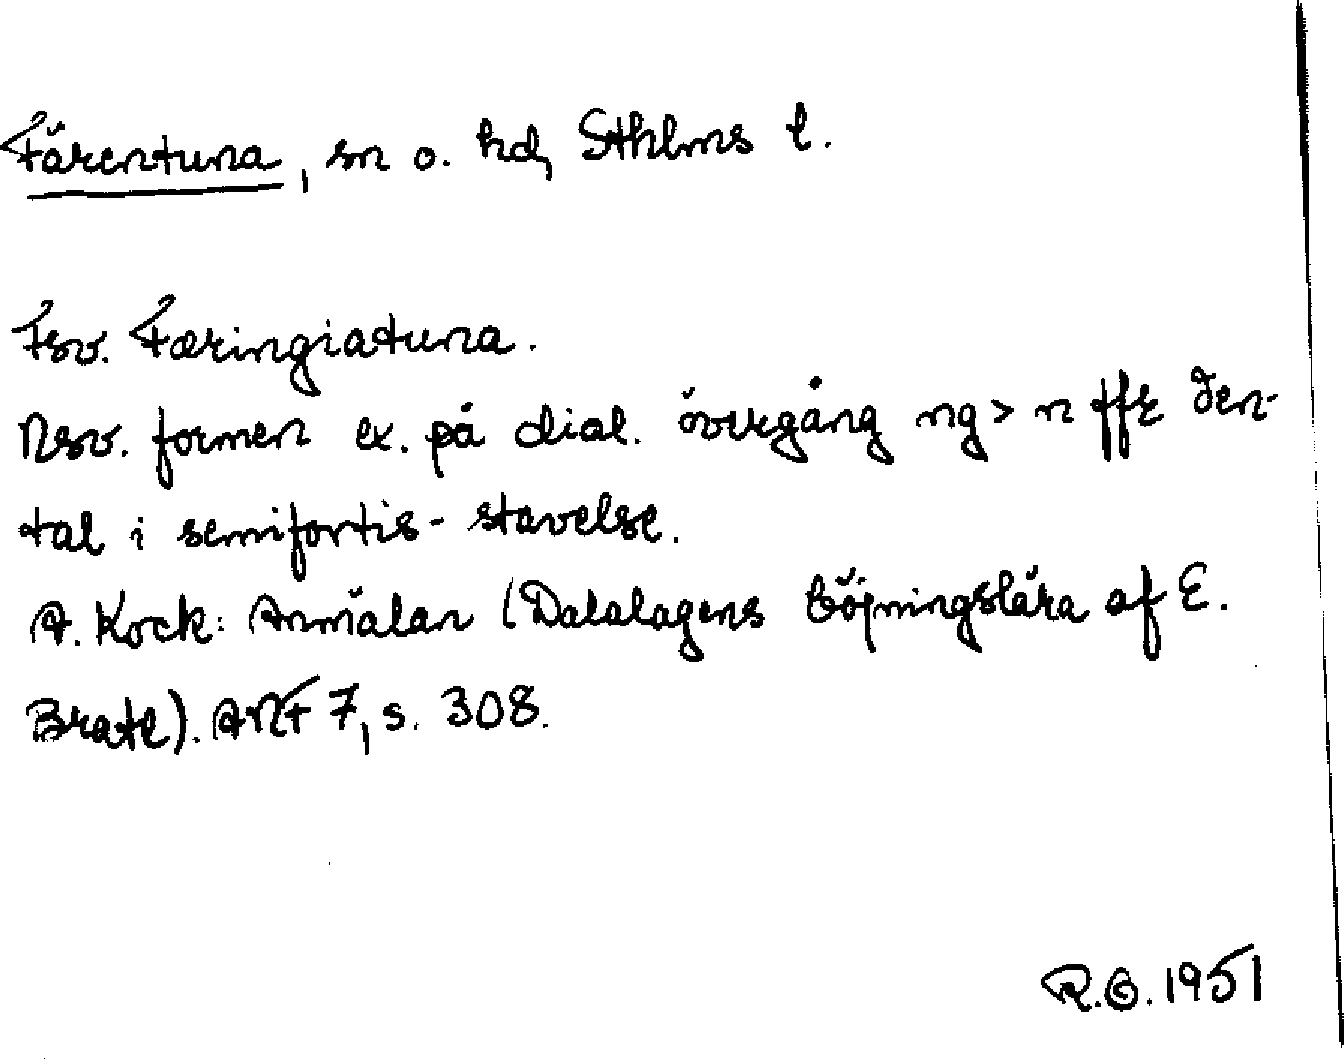 Färentuna, sn o. hd, Sthlms l.
Fsv. Færingiatuna.
Nsv. formen ex. på dial. övergång ng > n ffr den-
tal i semifortis-stavelse.
A. Kock: Anmälan (Dalalagens böjningslära af E.
Brate). ANF 7, s. 308.
R.G. 1951